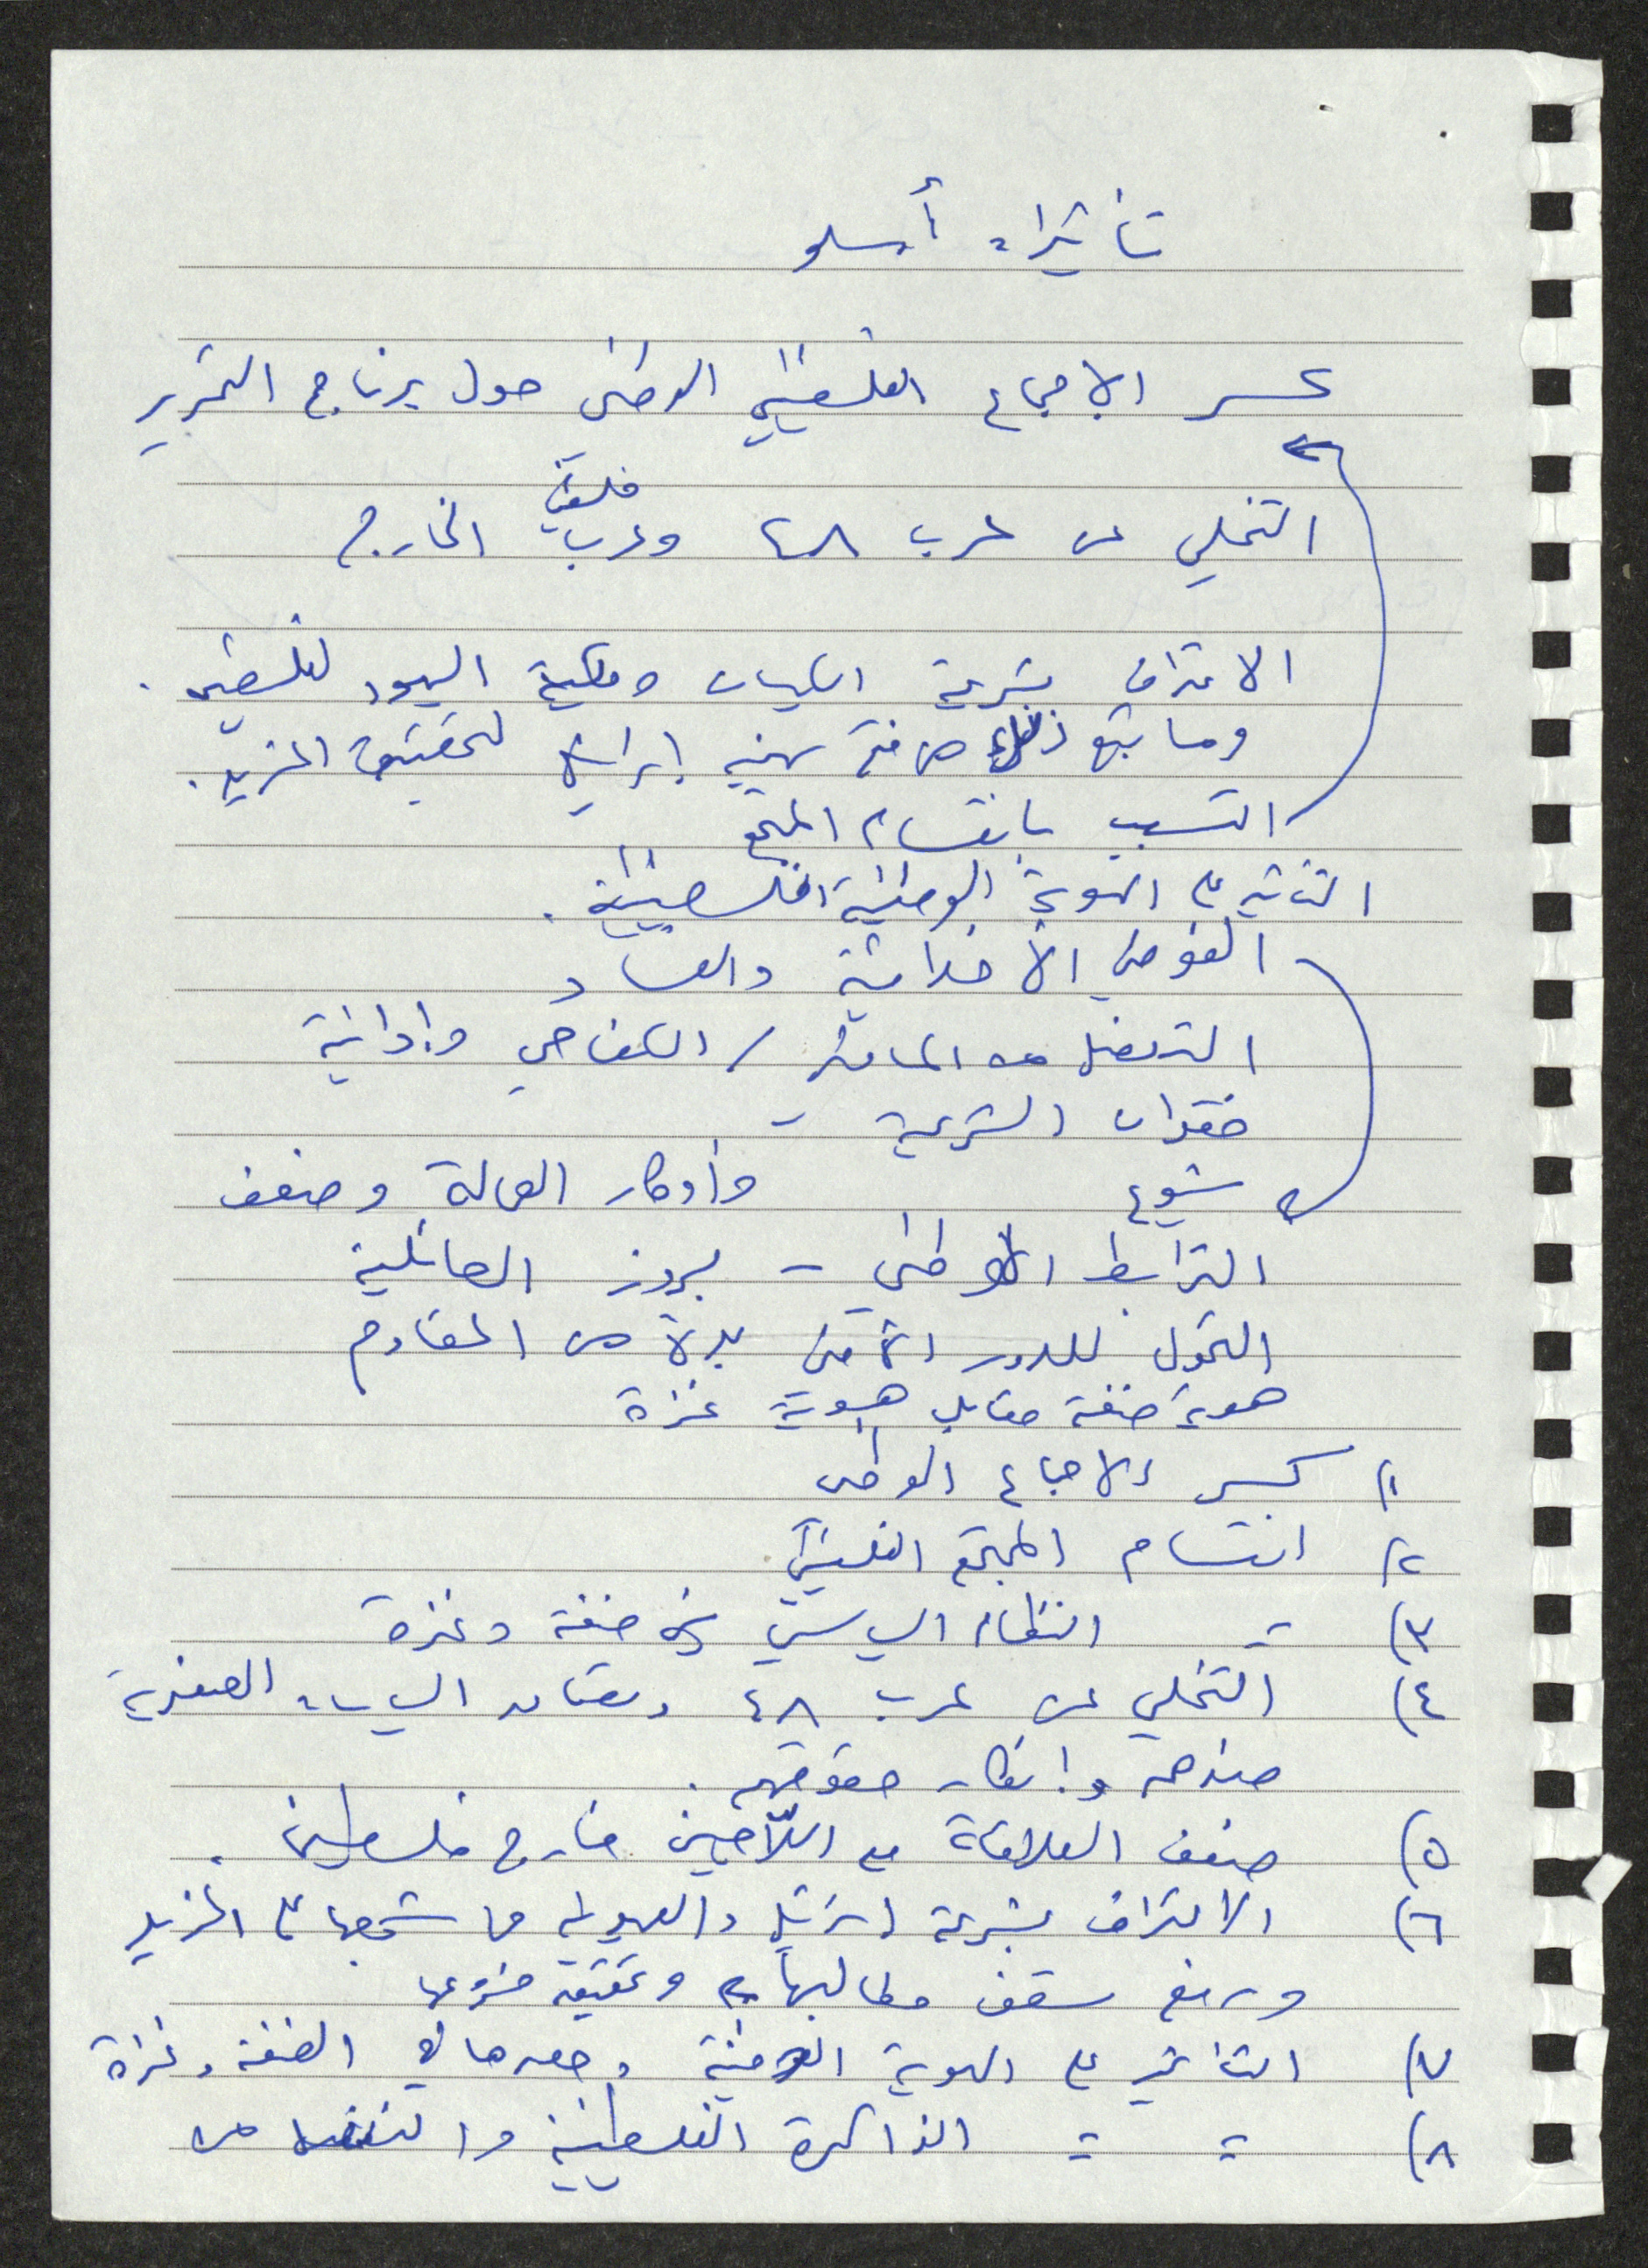 تأثيرات أوسلو
كسر الاجماع الفلسطيني الوطني حول برنامج التحرير
التخلي عن عرب ٤٨ وعرب فلسطين الخارج
الاعتراف بشرعية الكيان وملكية اليهود لفلسطين .
وما يتبع ذلك من إسرائيل لتحقيق المزيد .
التسبب بانقسام المجتمع
التأثير على الهوية الوطنية الفلسطينية .
الفوضى الأخلاقية والفساد
التنصل من الماضي / الكفاحي وإدانية
فقدان الشرعية -
شيوع وأوكار العمالة وضعف
الترابط الوطني - بروز العائلية
التحول للدور الأمني بدلاً من المقاوم
هوية ضفة مقابل هوية غزة
١) كسر الاجماع الوطني
٢) انقسام المجتمع الفلسطيني
٣) = النظام السياسي في ضفة وغزة
٤) التخلي عن عرب ٤٨ السياسات العنصرية
ضدهم وإنكار حقوقهم .
٥) ضعف العلاقة مع اللاجئين خارج فلسطين .
٦) الاعتراف بشرعية إسرائيل والصهيونية ما شجعها على المزيد
ورفع سقف مطالبها وتحقيق مشروعها
٧) التأثير على الهوية الوطنية وحصرها في الضفة وغزة
٨) = = الذاكرة الفلسطينية والتنصل من